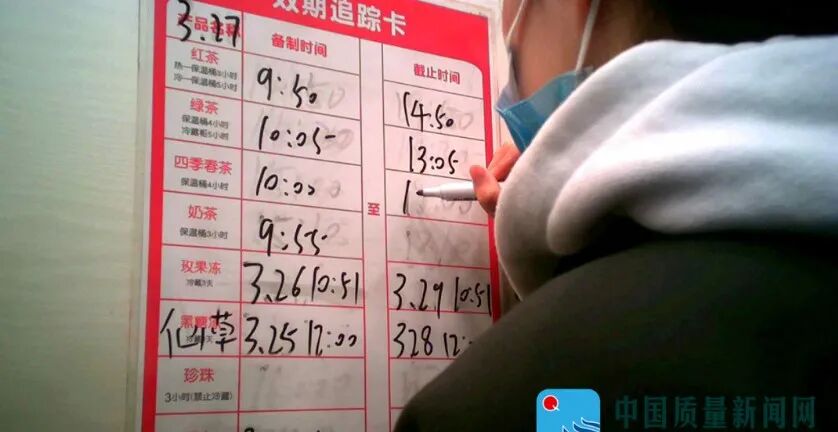 效期追踪卡
3.27
产品名称
备制时间
截止时间
红茶
热—保温桶3小时
冷—保温桶5小时
9:50
14:50
绿茶
保温桶4小时
冷藏柜5小时
10:05
13:05
四季春茶
保温桶4小时
10:00
至
1
奶茶
保温桶3小时
9:55
玫果冻
冷藏3天
3.26 10:51
3.29 10:51
仙草
3.25 12:00
328 12:
珍珠
3小时(禁止冷藏)
中国质量新闻网